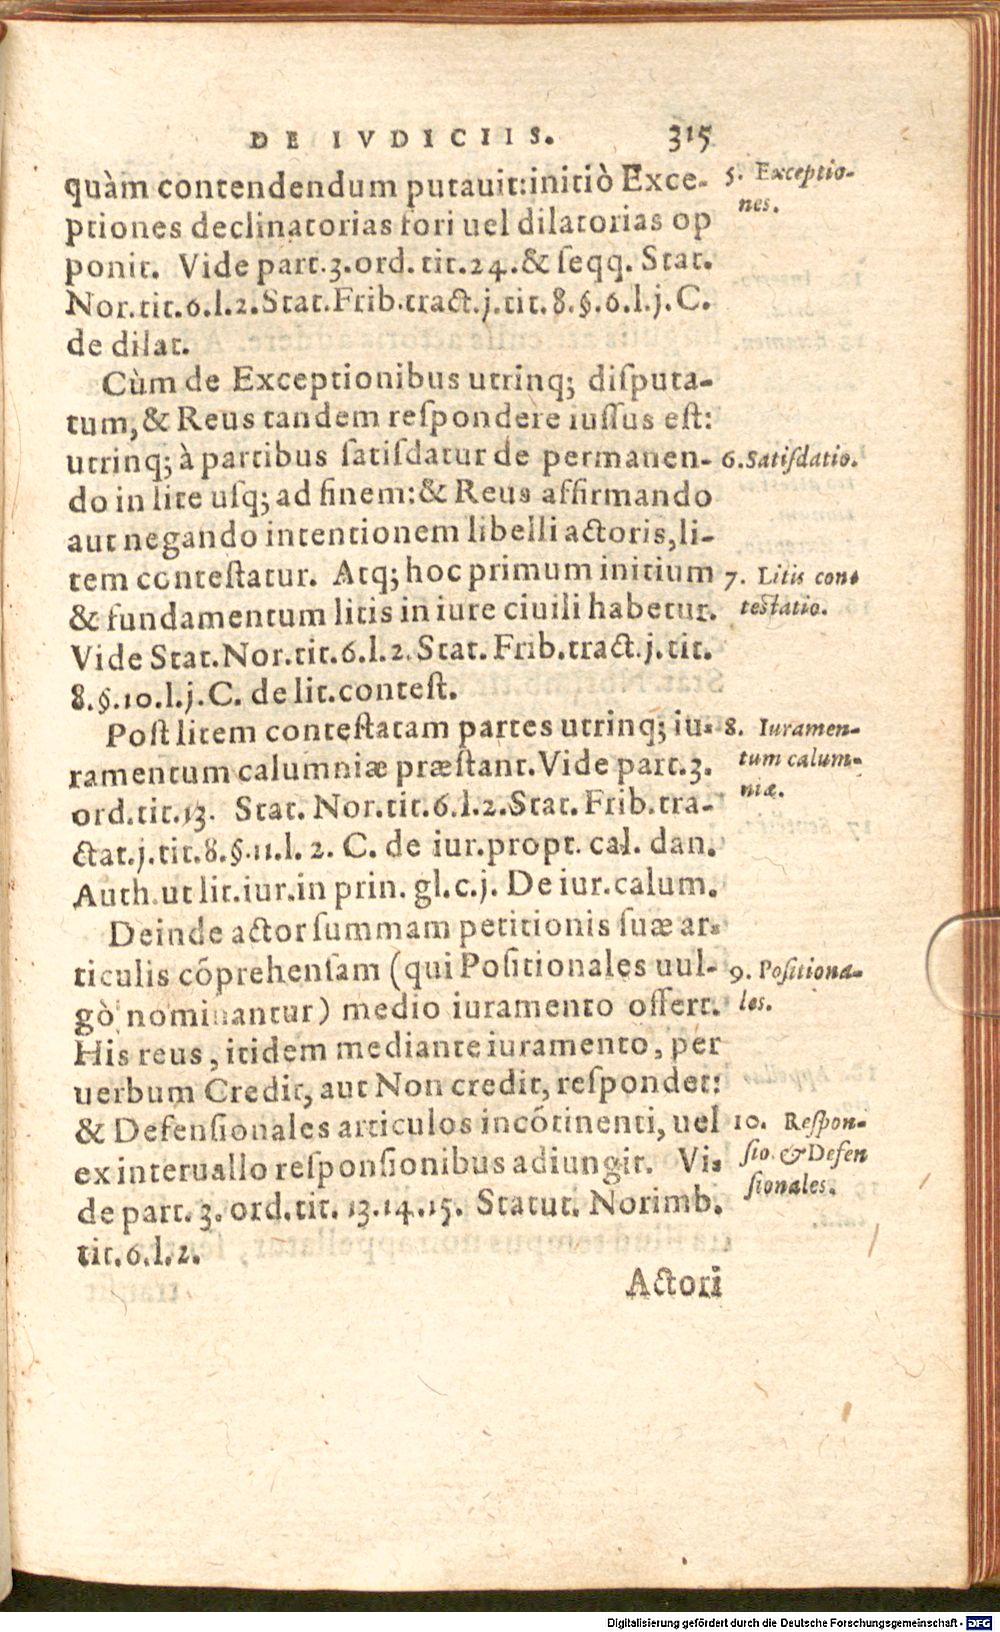 DE IVDICIIS. 315
quàm contendendum putauit: initiò Exce-
ptiones declinatorias fori uel dilatorias op
ponit. Vide part.3.ord.tit.24.& ſeqq. Stat.
Nor.tit.6.l.2.Stat.Frib.tract.j.tit.8.§.6.l.j.C.
de dilat.
5. Exceptio-
nes.
Cùm de Exceptionibus utrinq; diſputa-
tum, & Reus tandem reſpondere iuſſus eſt:
utrinq; à partibus ſatiſdatur de permanen-
do in lite uſq; ad finem: & Reus affirmando
aut negando intentionem libelli actoris, li-
tem conteſtatur. Atq; hoc primum initium
& fundamentum litis in iure ciuili habetur.
Vide Stat.Nor.tit.6.l.2. Stat. Frib.tract.j.tit.
8.§.10.l.j.C. de lit.conteſt.
6. Satiſdatio.
7. Litis con-
teſtatio.
Poſt litem conteſtatam partes utrinq; iu-
ramentum calumniæ præſtant. Vide part.3.
ord.tit.13. Stat. Nor.tit.6.l.2.Stat. Frib.tra-
ctat.j.tit.8.§.11.l. 2. C. de iur.propt. cal. dan.
Auth.ut lit.iur.in prin. gl.c.j. De iur.calum.
8. Iuramen-
tum calum-
niæ.
Deinde actor ſummam petitionis ſuæ ar-
ticulis cõprehenſam (qui Poſitionales uul-
gò nominantur) medio iuramento offert.
His reus, itidem mediante iuramento, per
uerbum Credit, aut Non credit, reſpondet:
& Defenſionales articulos incõtinenti, uel
ex interuallo reſponſionibus adiungit. Vi-
de part. 3. ord.tit. 13.14.15. Statut. Norimb.
tit.6.l.2.
9. Poſitiona-
les.
10. Reſpon-
ſio. & Defen
ſionales.
Actori
Digitalisierung gefördert durch die Deutsche Forschungsgemeinschaft - DFG